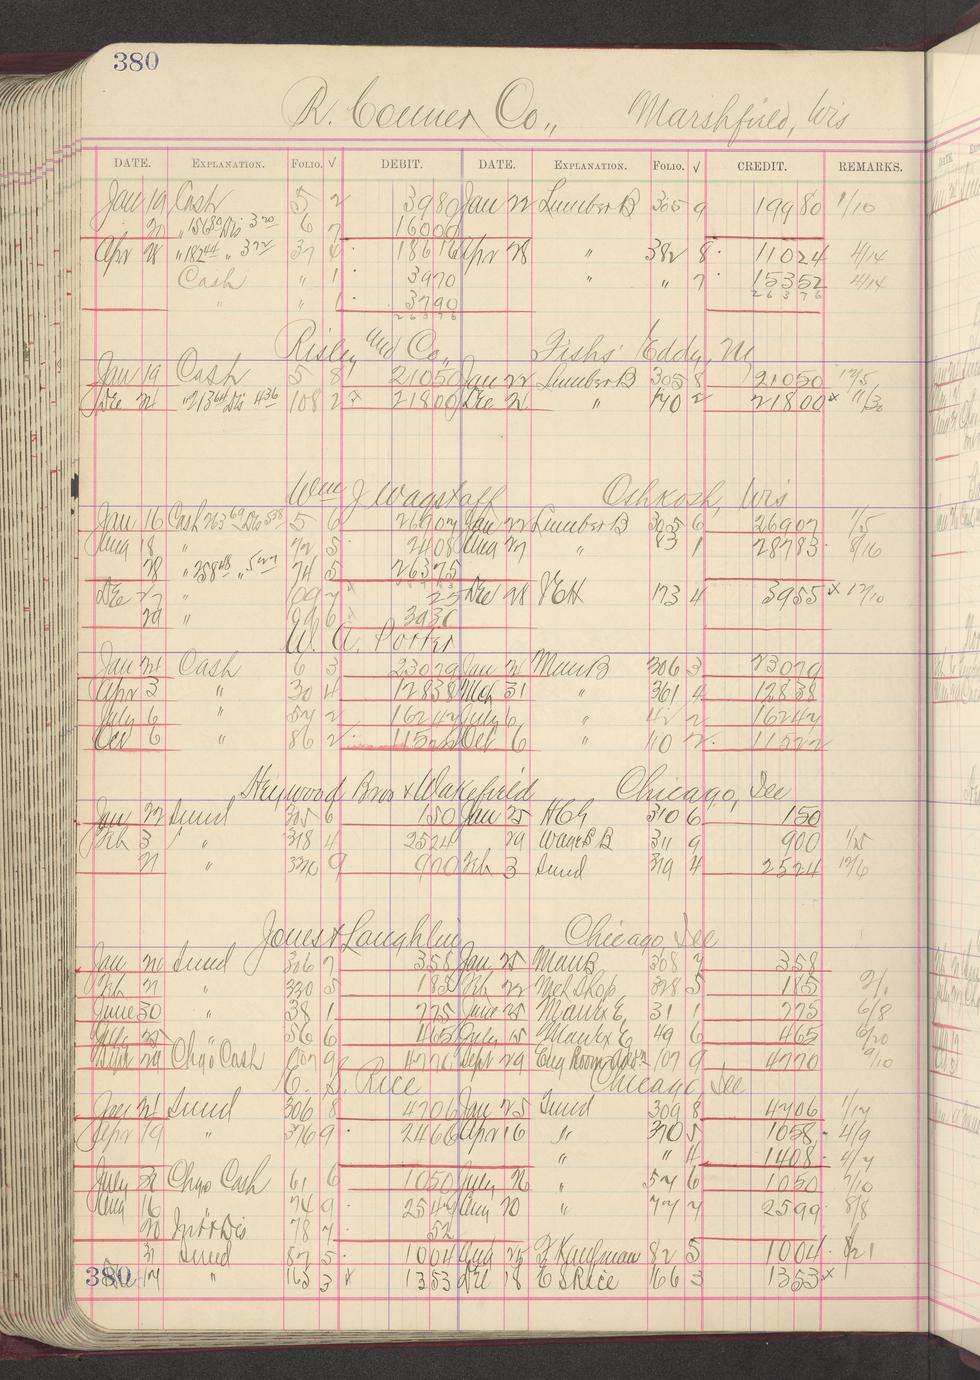 380
R. Connor Co., Marshfield, Wis
DATE. EXPLANATION. FOLIO. √ DEBIT. DATE. EXPLANATION. FOLIO. √ CREDIT. REMARKS.
Jan 19 Cash 5 2 3980 Jan 22 Lumber B 305 9 19980 1/10
20 " 15680 Dis 320 6 7 16000
Apr 28 " 18244 " 372 37 18616 Apr 28 " 382 8 11024 4/14
Cash " 1 3970 " " 7 15352 4/14
" " 1 3790 26376
26376
Risley and Co., Fishs Eddy, NY
Jan 19 Cash 5 8 21050 Jan 22 Lumber B 305 8 21050 12/5
Dec 21 " 21364 Dis 436 108 2 x 21800 Dec 21 " 170 2 21800 x 11/30
Wm J Wagstaff Oshkosh, Wis
Jan 16 Cash 26369 Dis 538 5 6 26907 Jan 22 Lumber B 305 6 26907 1/5
Aug 18 " 72 5 2408 Aug 27 " 83 1 28783 8/16
28 " 25848 " 527 74 5 26375
Dec 27 " 109 7 25 Dec 28 173 4 3955 x 12/10
29 " 6 3930
W. A. Porter
Jan 21 Cash 6 3 23079 Jan 21 Man B 306 3 23079
Apr 3 " 30 4 12838 Mch 31 " 361 4 12838
July 6 " 57 2 16247 July 6 " 42 2 16247
Oct 6 " 86 2 11522 Oct 6 " 110 2 11522
Heywood Bros & Wakefield Chicago, Ill
Jan 22 Sund 305 6 150 Jan 25 310 6 150
Feb 3 " 318 4 2524 29 Wages B 311 9 900 1/15
21 " 330 9 900 Feb 3 Sund 319 4 2524 12/6
Jones & Laughlin Chicago, Ill
Jan 20 Sund 306 7 358 Jan 25 Man B 308 7 358
Feb 21 " 330 5 185 Feb 22 Mch Shop 328 5 185 2/1
June 30 " 38 1 775 June 25 Manfx E 31 1 775 6/8
July 25 " 56 6 465 July 15 Manfx E 49 6 465 6/20
Sept 29 Chgo Cash 107 9 4770 Sept 29 Eng Room 107 9 4770 9/10
E. S. Rice Chicago, Ill
Jan 21 Sund 306 8 4706 Jan 25 Sund 309 8 4706 1/17
Apr 19 " 376 9 2466 Apr 16 " 370 5 1058 4/9
" " 4 1408 4/7
July 28 Chgo Cash 61 6 1050 July 26 " 57 6 1050 7/10
Aug 16 74 9 2547 Aug 20 " 77 7 2599 8/8
20 Int & Dis 78 7 52
31 Sund 87 5 1004 Aug 25 F Kaufman 82 5 1004 8/21
380 Dec 14 " 163 3 x 1353 Dec 18 E S Rice 166 3 1353 x